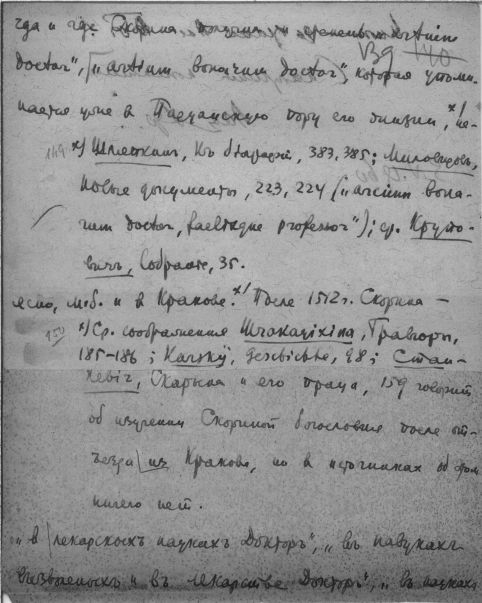 гда и где Скорина получил степень "artium
Вд 140
doctor", ("artium bonarum doctor"), которая упоми-
нается уже в Падуанскую пору его жизни, х) не-
149 х) Шляпкин, К биографии, 383, 385; Миловидов,
Новые документы, 223, 224 ("arcium bona-
rum doctor, professor"); ср. Крупо-
вич, Собрание, 35.
ясно, м.б. и в Кракове. х) После 1512 г. Скорина –
150 х) Ср. соображения Шчакаціхіна, Гравюры,
185–186; Karskij, Geschichte, 98; Стан-
кевіч, Скарына и его праца, 159 говорит
об изучении Скориной богословия после отъ-
езда из Кракова, но в источниках об этом
ничего нет.
"в лекарскихъ наукахъ Докторъ", "въ навукахъ
вызволеныхъ и въ лекарстве Докторъ", "въ науках